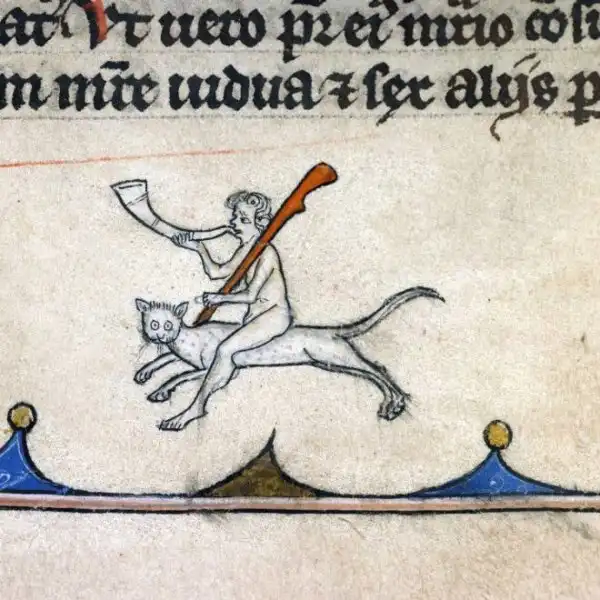 at Vt uero pr̄ eiꝰ mr̄io cōsu
m mr̄e uidua ⁊ sex alijs p